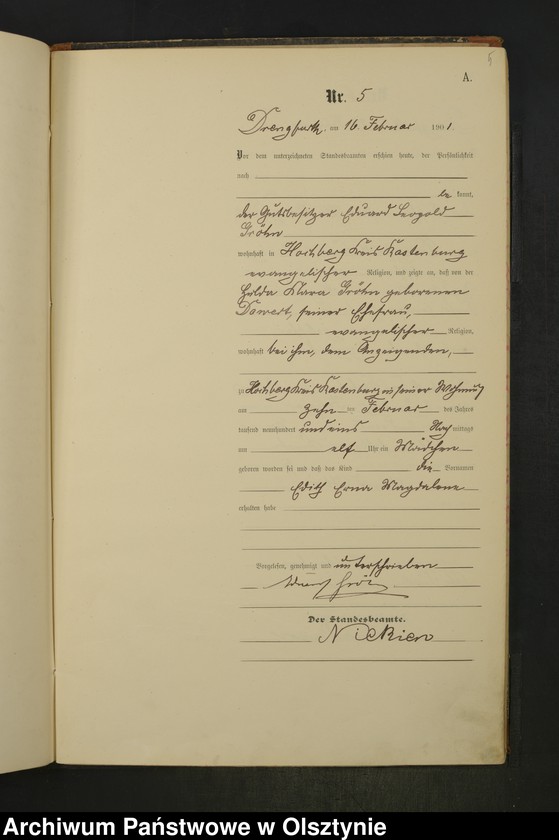 5
A.
Nr. 5
Drengfurth, am 16. Februar 1901.
Vor dem unterzeichneten Standesbeamten erschien heute, der Persönlichkeit
nach
be kannt,
der Gutsbesitzer Eduard Leopold
Gröhn
wohnhaft in Hochberg Kreis Rastenburg
evangelischer Religion, und zeigte an, daß von der
Hulda Klara Gröhn geborenen
seiner Ehefrau,
evangelischer Religion,
wohnhaft bei ihm, dem Anzeigenden,
zu Hochberg Kreis Rastenburg in seiner Wohnung
am zehn ten Februar des Jahres
tausend neunhundert und eins Nach mittags
um elf Uhr ein Mädchen
geboren worden sei und daß das Kind die Vornamen
Edith Erna Magdalene
erhalten habe
Vorgelesen, genehmigt und unterschrieben
Eduard Gröhn
Der Standesbeamte.
Archiwum Państwowe w Olsztynie